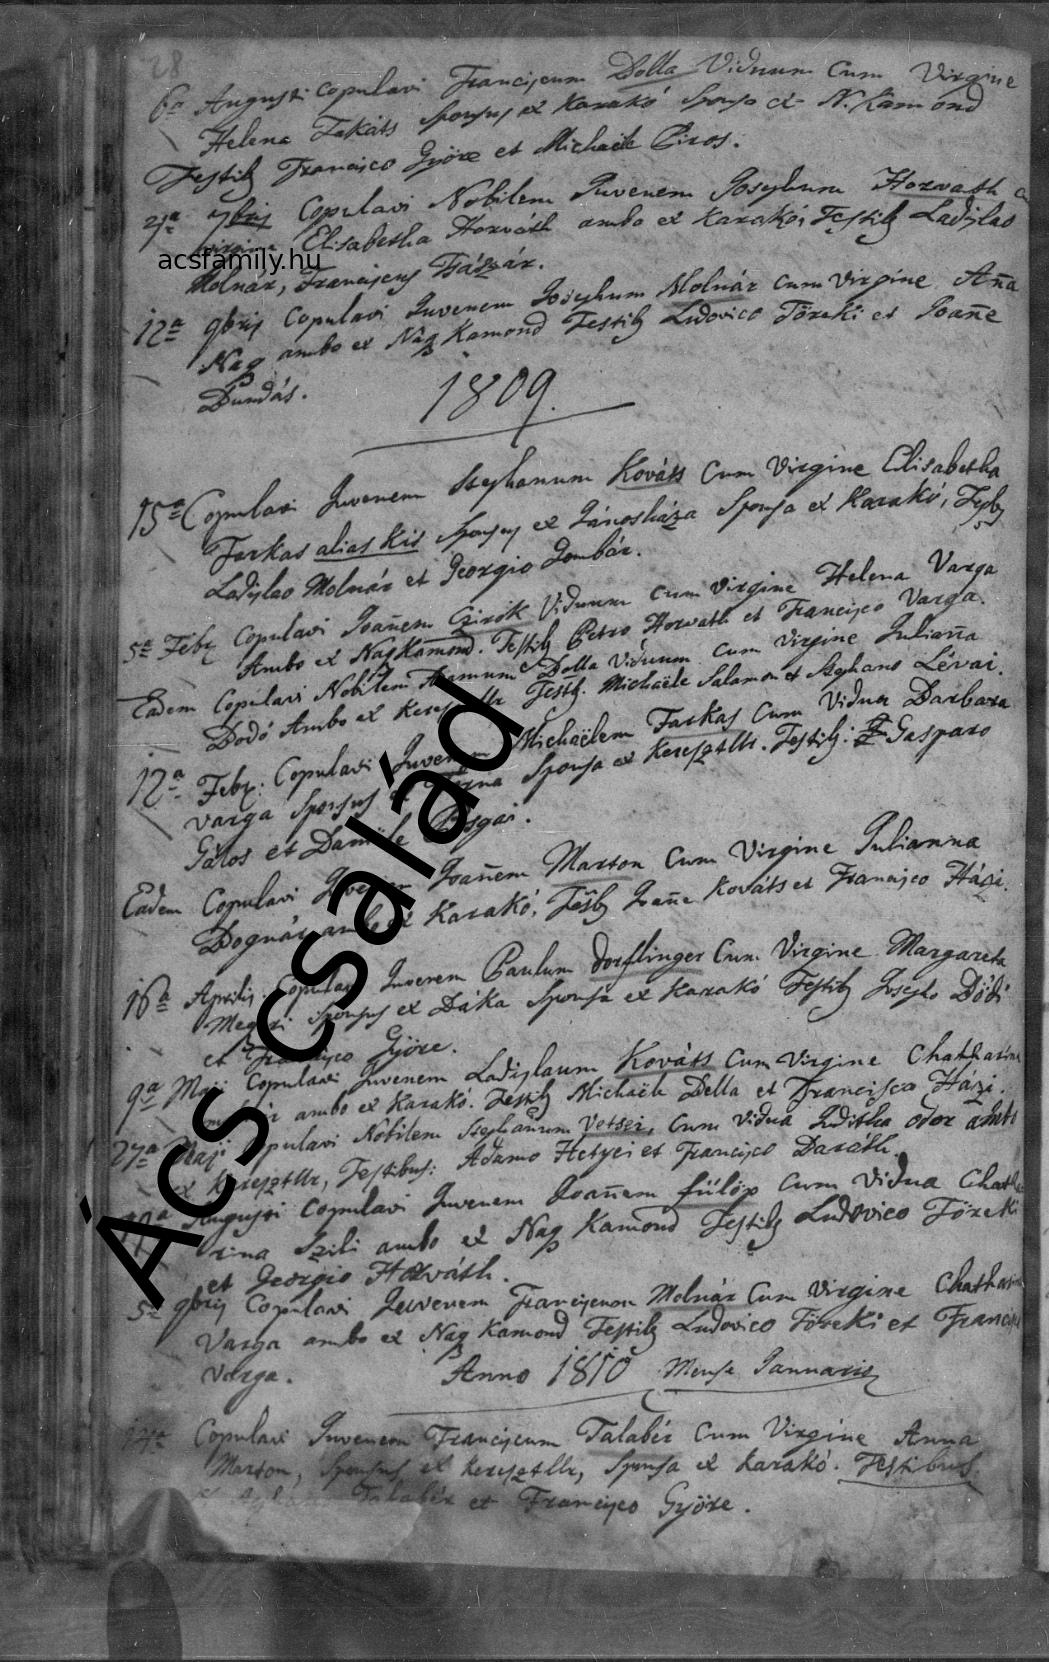 28
6a Augusti Copulavi Franciscum Dolla Viduum Cum Virgine
Helena Takáts Sponsus ex Karakó Sponsa ex N. Kamond
Testib Francisco Györe et Michaele Piros.
7bris Copulavi Nobilem Juvenem Josephum Horvath
virgine Elisabetha Horváth ambo ex Karakó, Testib Ladislao
acsfamily.hu
Molnár, Franciscus
12a 9bris Copulavi Juvenem Josephum Molnár cum Virgine Anna
Nag ambo ex Nag Kamond Testib Ludovico Töreki et Joanne
Dundás.
1809.
15a Copulavi Juvenem Stephanum Kováts Cum Virgine Elisabetha
Farkas alias Kis Sponsus ex Jánosháza Sponsa ex Karakó, Testb
Ladislao Molnár et Georgio Gombár.
5a Febr Copulavi Joannem Czirók Viduum cum Virgine Helena Varga
Ambo ex Nag Kamond. Testib Petro Horvath et Francisco Varga.
Eadem Copulavi Nobilem Adamum Dolla Viduum cum Virgine Julianna
Dodó Ambo ex Testb. Michaële Salamon et Stephano Lévai.
12a Febr: Copulavi Juvenem Michaëlem Farkas Cum Vidua Barbara
Varga Sponsus Sponsa ex Keresztur. Testib: Gasparo
Gálos et Daniele
Eadem Copulavi Juvenem Joannem Marton Cum Virgine Julianna
Bognár ambo ex Karakó, Testb Joanne Kováts et Francisco Házi.
16a Aprilis Copulavi Juvenem Paulum Dorflinger Cum Virgine Margareta
Sponsus ex Dáka Sponsa ex Karakó Testib Josepho Dödi
et Francisco Györe.
9a Maji Copulavi Juvenem Ladislaum Kováts Cum Virgine Chatharina
ambo ex Karakó. Testib Michaële Della et Francisco Házi.
27a Maji Copulavi Nobilem Stephanum Vetsei, Cum Vidua Juditha odor ambo
ex Keresztur, Testibus: Adamo Hetyei et Francisco Baráth.
Augusti Copulavi Juvenem Joannem fülöp Cum Vidua Chatha
rina Szili ambo ex Nag Kamond Testib Ludovico Töreki
et Georgio Horváth.
5a 9bris Copulavi Juvenem Franciscum Molnár Cum Virgine Chatharina
Varga ambo ex Nag Kamond Testib Ludovico Töreki et Francisco
Varga.
Anno 1810 Mense Januario
Copulavi Juvenem Franciscum Talabér Cum Virgine Anna
Marton, Sponsus ex Keresztur, Sponsa ex Karakó. Testibus
Talabér et Francisco Györe.
Ács család